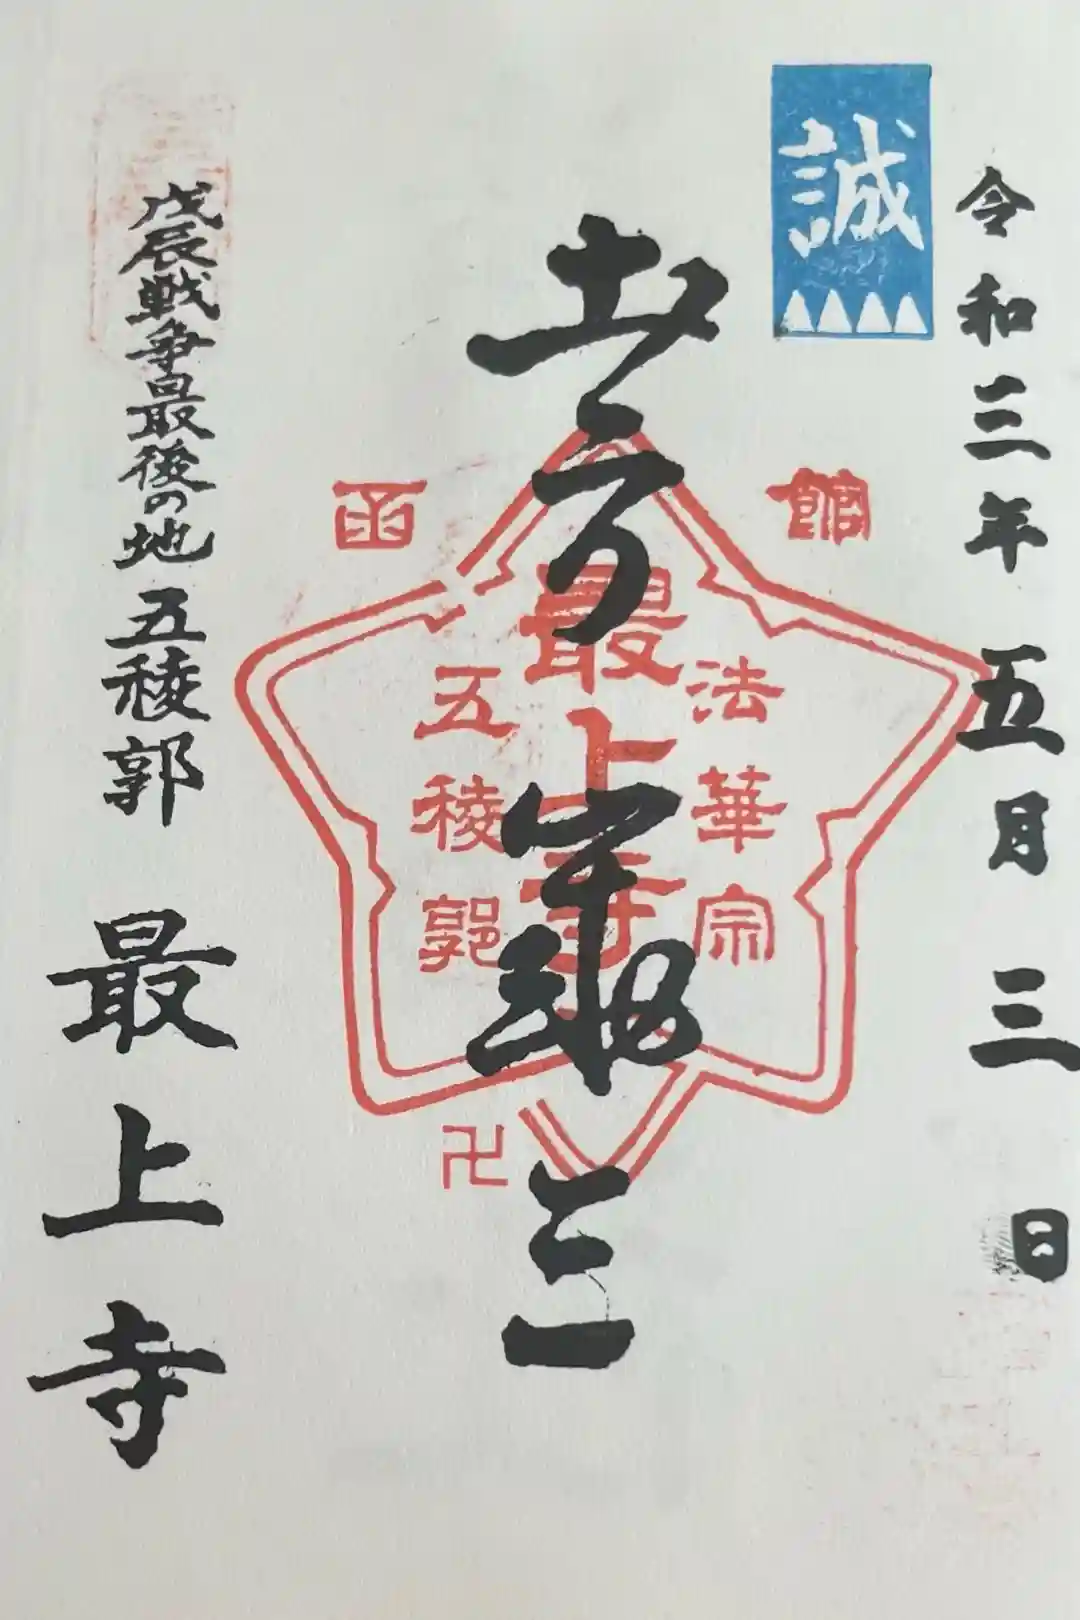 令和三年五月三日
誠
土方歳三
函館
法華宗
最上寺
五稜郭
卍
戊辰戦争最後の地 五稜郭
最上寺